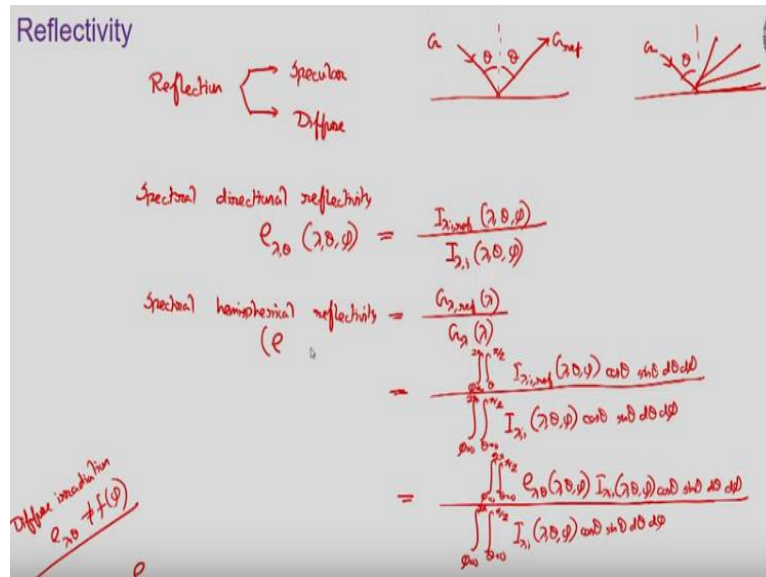 Reflectivity
Reflection → Specular
→ Diffuse
G θ θ G_ref
G θ
Spectral directional reflectivity
ρ_λθ (λ,θ,φ) = I_λi,ref (λ,θ,φ) / I_λ,i (λ,θ,φ)
Spectral hemispherical reflectivity = G_λ,ref (λ) / G_λ (λ)
(ρ
= ∫_{φ=0}^{2π} ∫_{θ=0}^{π/2} I_λi,ref (λ,θ,φ) cosθ sinθ dθ dφ / ∫_{φ=0}^{2π} ∫_{θ=0}^{π/2} I_λi (λ,θ,φ) cosθ sinθ dθ dφ
= ∫_{φ=0}^{2π} ∫_{θ=0}^{π/2} ρ_λθ (λ,θ,φ) I_λi (λ,θ,φ) cosθ sinθ dθ dφ / ∫_{φ=0}^{2π} ∫_{θ=0}^{π/2} I_λi (λ,θ,φ) cosθ sinθ dθ dφ
Diffuse irradiation
ρ_λθ ≠ f(φ)
ρ